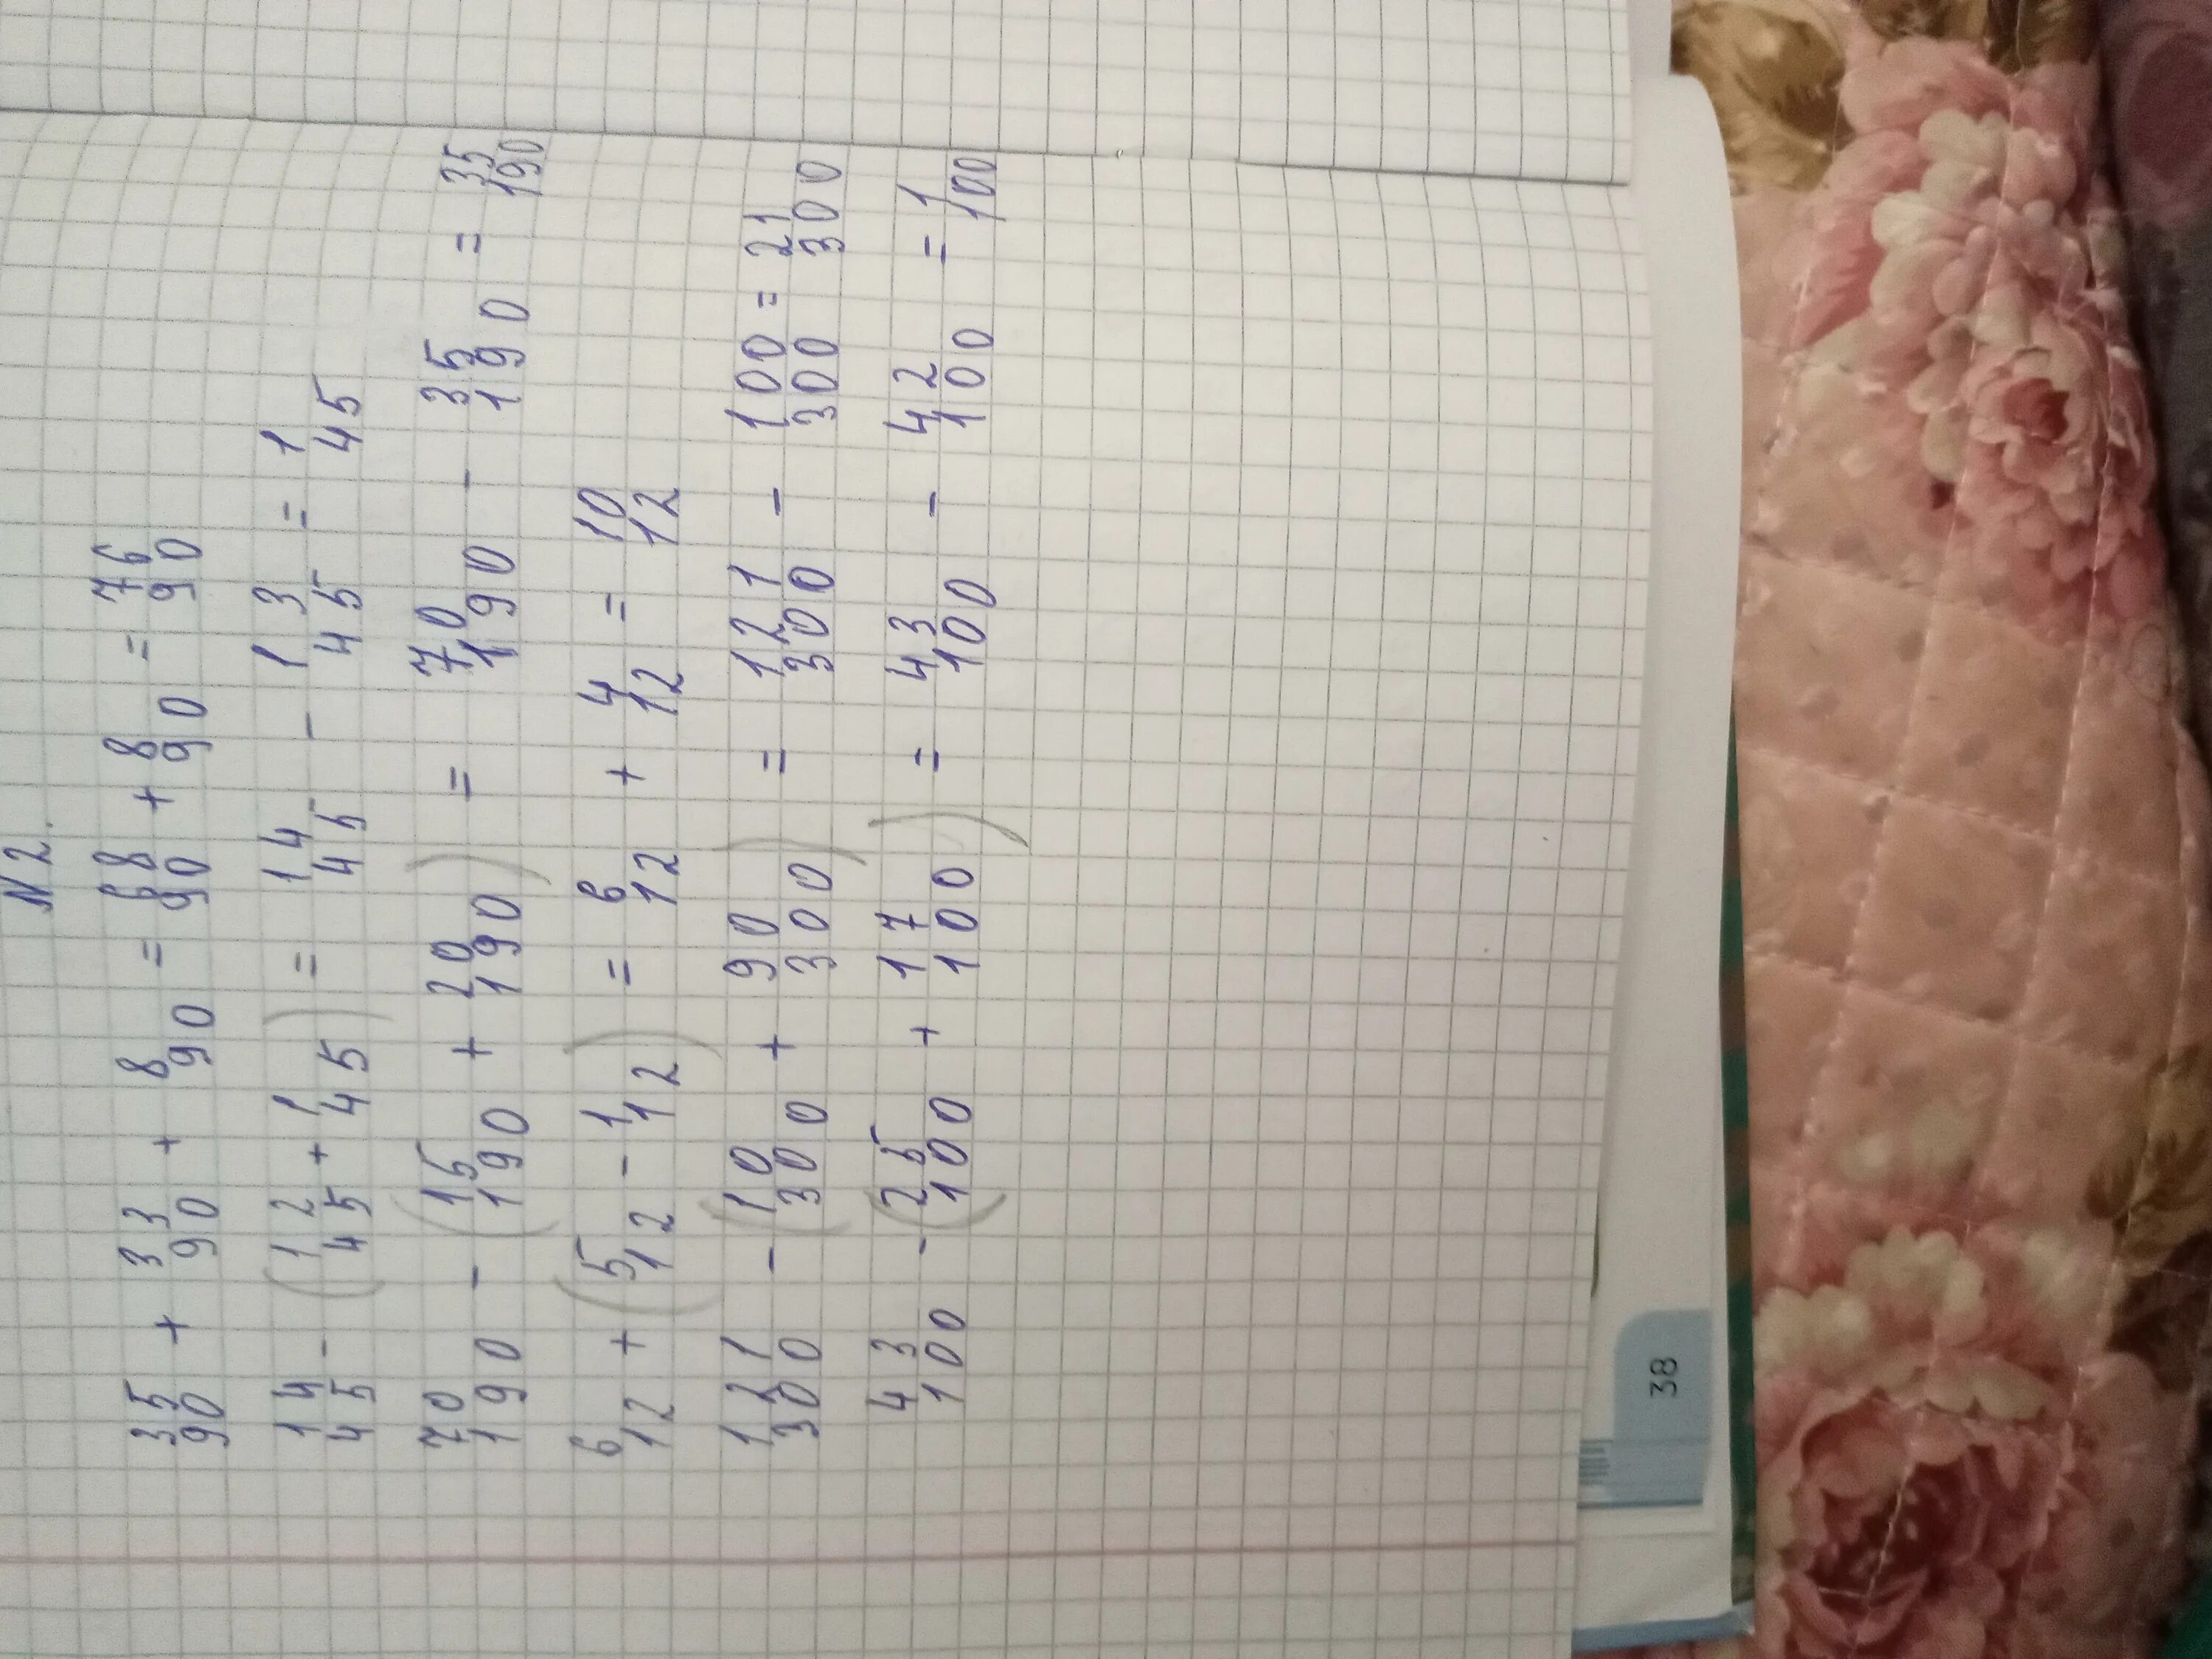 N2.
35/90 + 33/90 + 8/90 = 68/90 + 8/90 = 76/90
14/45 - (12/45 + 1/45) = 14/45 - 13/45 = 1/45
70/190 - (15/190 + 20/190) = 70/190 - 35/190 = 35/190
6/12 + (5/12 - 1/12) = 6/12 + 4/12 = 10/12
121/300 - (10/300 + 90/300) = 121/300 - 100/300 = 21/300
43/100 - (25/100 + 17/100) = 43/100 - 42/100 = 1/100
38